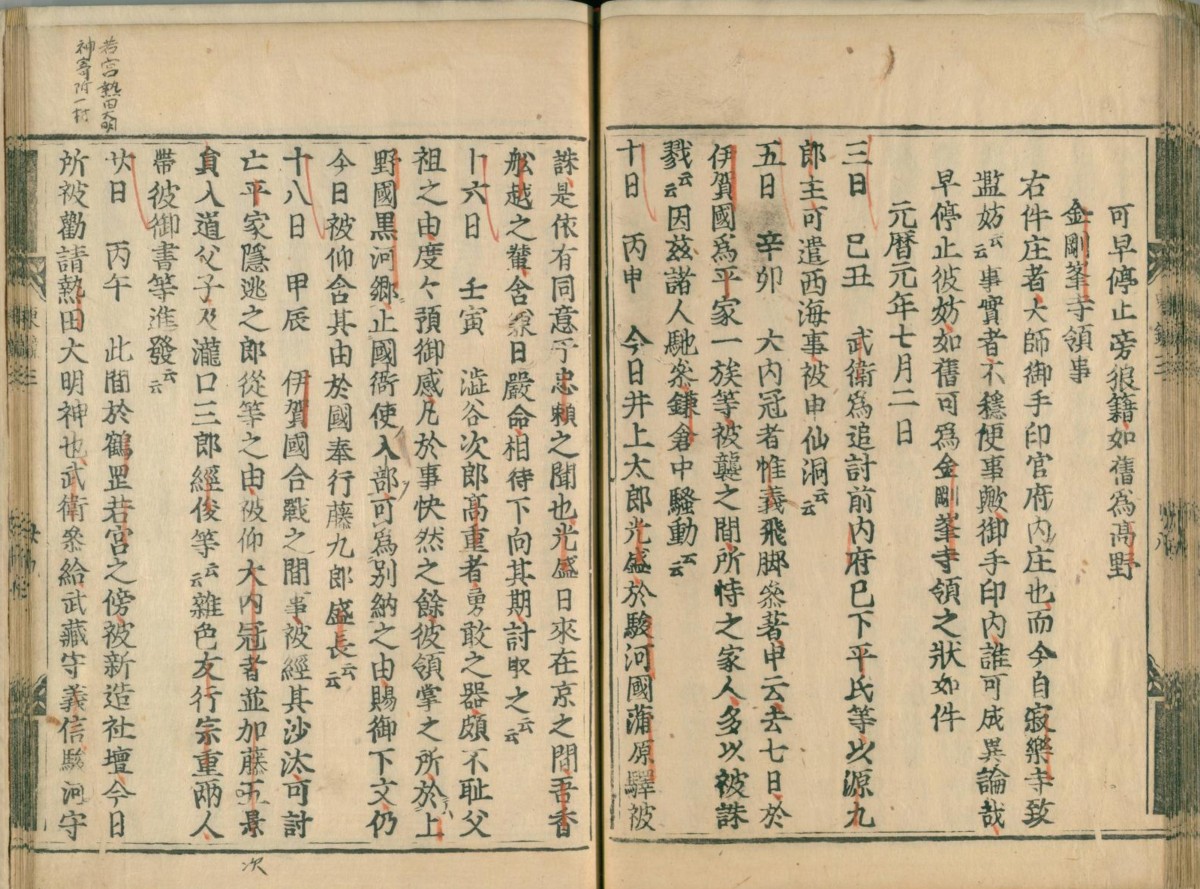 可早停止旁狼籍如舊為髙野
金剛峯寺領事
右件庄者大師御手印官府内庄也而今自寂樂寺致
濫妨云云事實者不穩便事歟御手印内誰可成異論哉
早停止彼妨如舊可為金剛峯寺領之狀如件
元曆元年七月二日
三日 己丑 武衛爲追討前内府已下平氏等以源九
郎主可遣西海事被申仙洞云云
五日 辛卯 大内冠者惟義飛脚叅著申云去七日於
伊賀國爲平家一族等被襲之間所恃之家人多以被誅
戮云云因茲諸人馳叅鎌倉中騷動云云
十日 丙申 今日井上太郎光盛於駿河國蒲原驛被
誅是依有同意于忠頼之聞也光盛日來在京之間吾香
舩越之輩含嚴日嚴命相待下向其期討取之云云
十六日 壬寅 澁谷次郎髙重者勇敢之器頗不耻父
祖之由度々預御感凡於事快然之餘彼領掌之所於上
野國黒河郷止國衙使入部可爲別納之由賜御下文仍
今日被仰含其由於國奉行藤九郎盛長云云
十八日 甲辰 伊賀國合戰之間事被經其沙汰可討
亡平家隱逃之郎從等之由被仰大内冠者並加藤五景
貟入道父子及瀧口三郎經俊等云云雜色友行宗重兩人
帶彼御書等進發云云
廿日 丙午 此間於鶴罡若宮之傍被新造社壇今日
所被勸請熱田大明神也武衛叅給武藏守義信駿河守
若宮熱田大明
神寄附一村
次